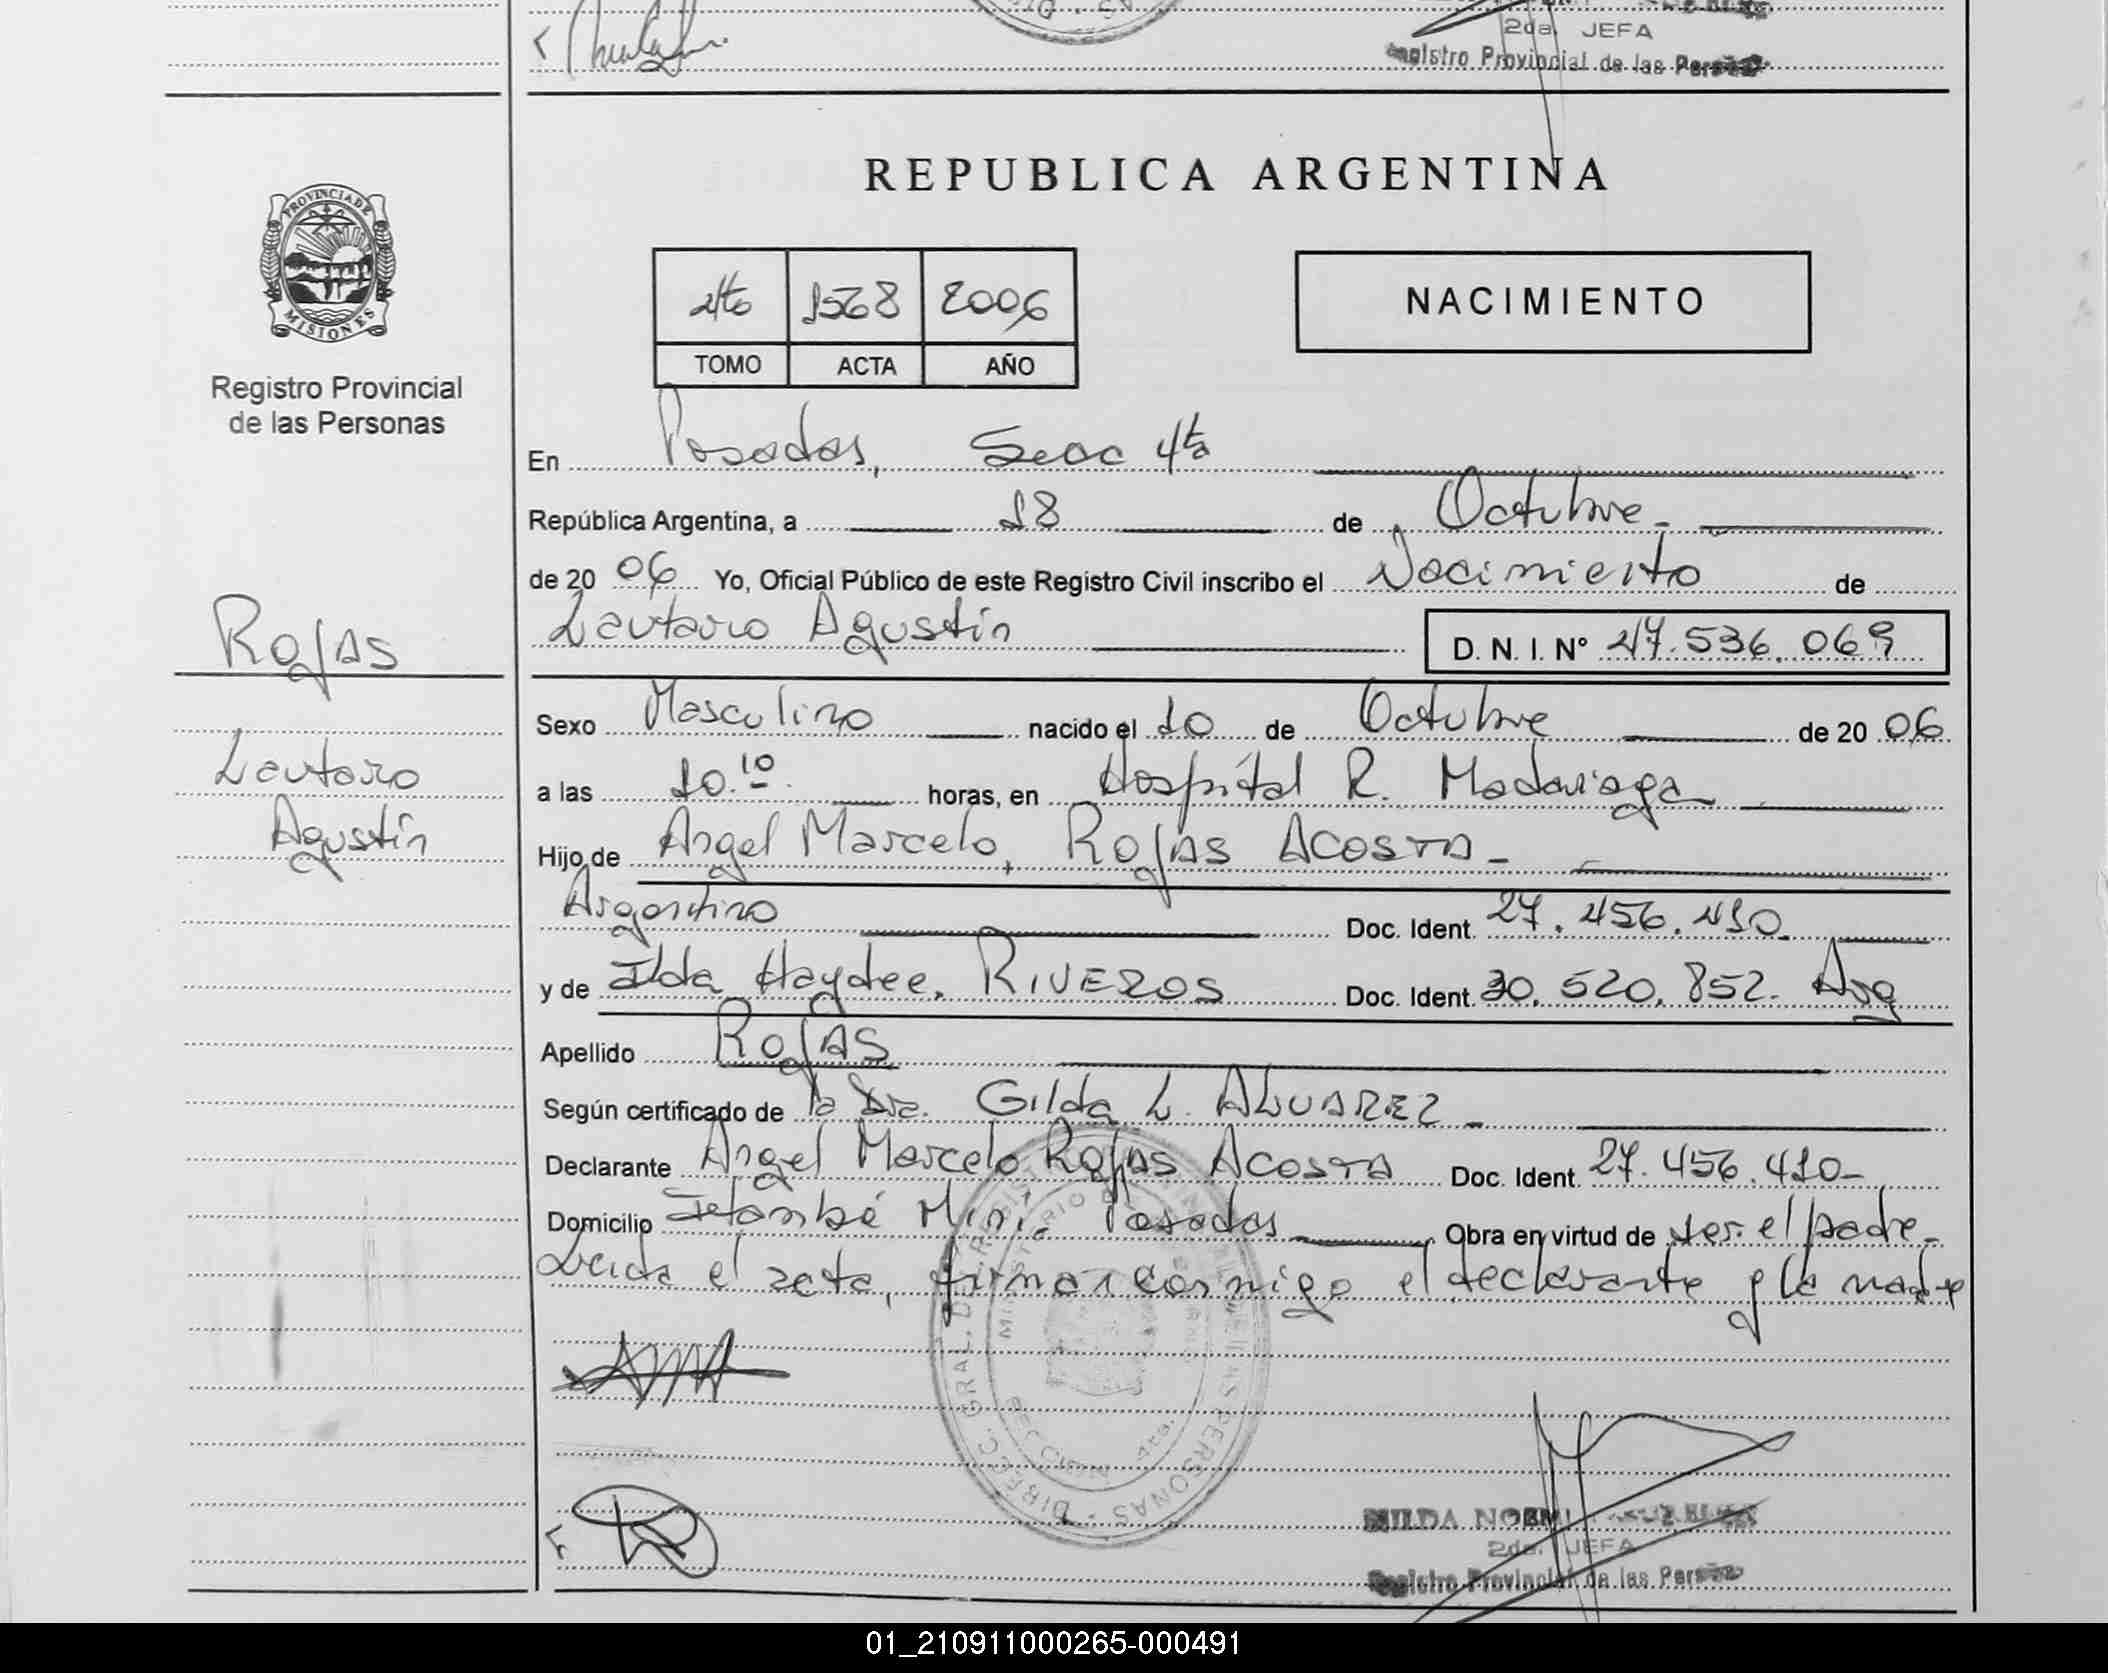 2da. JEFA
Registro Provincial de las Personas
PROVINCIA DE
MISIONES
Registro Provincial
de las Personas
REPUBLICA ARGENTINA
4to 1568 2006
TOMO ACTA AÑO
NACIMIENTO
En Posadas, Secc 4ta
República Argentina, a 18 de Octubre.
de 20 06 Yo, Oficial Público de este Registro Civil inscribo el Nacimiento de
Lautaro Agustín
D. N. I. N° 47.536.069
Rojas
Lautaro
Agustín
Sexo Masculino nacido el 10 de Octubre de 20 06
a las 10.10 horas, en Hospital R. Madariaga
Hijo de Angel Marcelo, Rojas Acosta
Argentino Doc. Ident. 27.456.410
y de Ilda Haydee, RIVEROS Doc. Ident. 30.520.852. Arg
Apellido Rojas
Según certificado de la Dra. Gilda L. ALVAREZ
Declarante Angel Marcelo Rojas Acosta Doc. Ident. 27.456.410
Domicilio Itambé Mini, Posadas Obra en virtud de ser el padre
Leida el acta, firman conmigo el declarante y la madre
NOEMI
2da. JEFA
Registro Provincial de las Personas
01_210911000265-000491